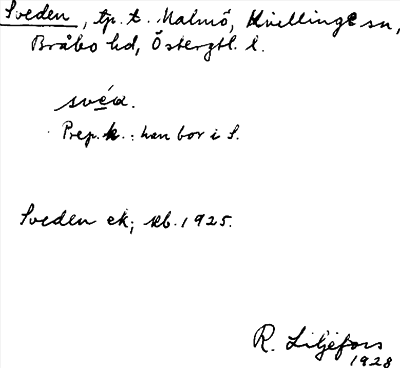 Sveden, tp. t. Malmö, Kvillinge sn,
Bråbo hd, Östergtl. l.
svéa.
Prep. k.: han bor i S.
Sveden ek; Jb. 1925.
R. Liljefors
1928